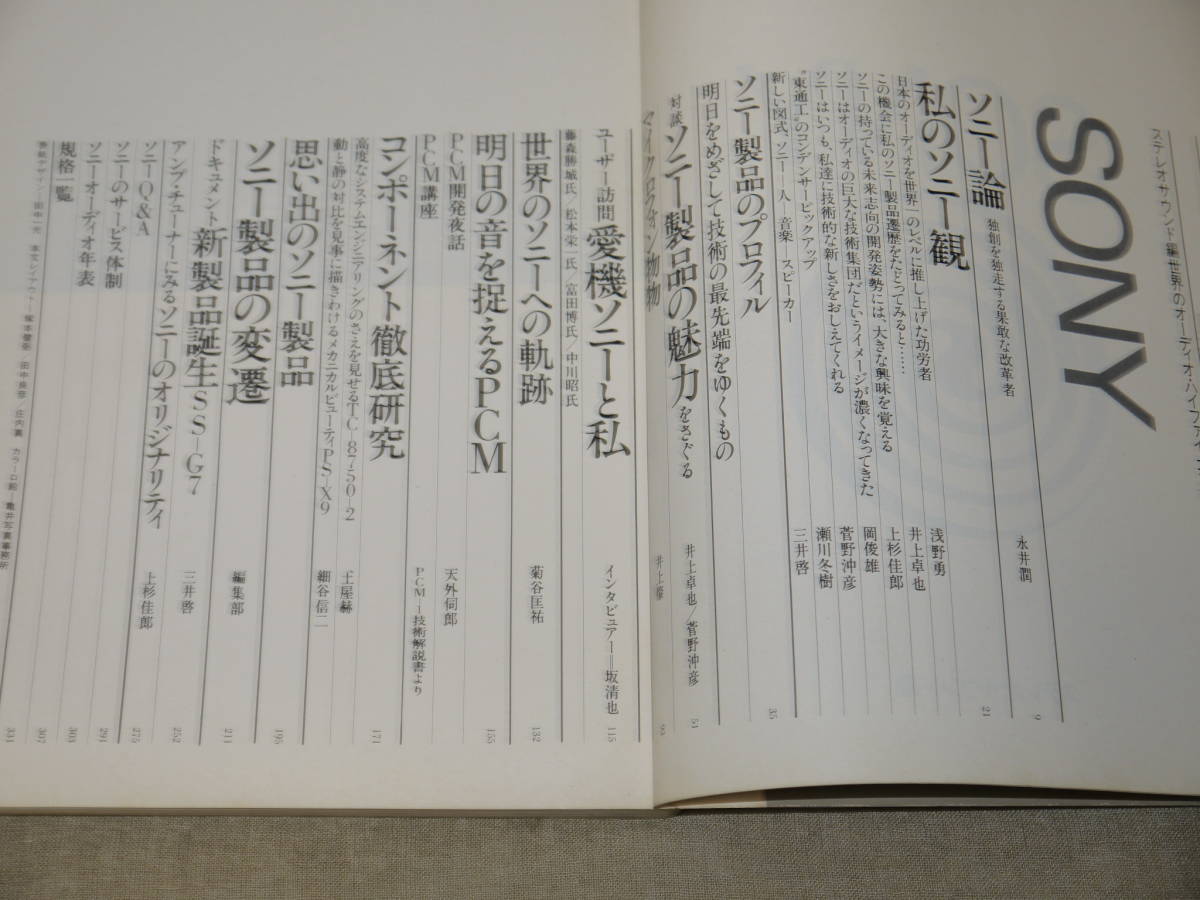 ステレオサウンド編 世界のオーディオ・ハイファイ
SONY
ソニー論 独創を独走する果敢な改革者 永井潤 9
私のソニー観 21
日本のオーディオを世界一のレベルに推し上げた功労者 浅野勇
この機会に私のソニー製品遷歴をたどってみると…… 井上卓也
ソニーの持っている未来志向の開発姿勢には、大きな興味を覚える 上杉佳郎
ソニーはオーディオの巨大な技術集団だというイメージが濃くなってきた 岡俊雄
ソニーはいつも、私達に技術的な新しさをおしえてくれる 菅野沖彦
“東通工”のコンデンサーピックアップ 瀬川冬樹
新しい図式、ソニー―人―音楽 スピーカー 三井啓
ソニー製品のプロフィル 35
明日をめざして技術の最先端をゆくもの
対談 ソニー製品の魅力をさぐる 井上卓也/菅野沖彦 51
マイクロフォン物物 井上
ユーザー訪問 愛機ソニーと私 インタビュアー=坂清也 115
藤森勝城氏/松本栄一氏/富田博氏/中川昭氏
世界のソニーへの軌跡 菊谷匡祐 132
明日の音を捉えるPCM 155
PCM開発夜話 天外伺郎
PCM講座 PCM―1技術解説書より
コンポーネント徹底研究 171
高度なシステムエンジニアリングのさえを見せるTC-8750-2 土屋赫
動と静の対比を見事に描きわけるメカニカルビューティPS-X9 細谷信二
思い出のソニー製品 195
ソニー製品の変遷 編集部 211
ドキュメント 新製品誕生SS-G7 三井啓 252
アンプ・チューナーにみるソニーのオリジナリティ 上杉佳郎 275
ソニーQ&A 291
ソニーのサービス体制 303
ソニーオーディオ年表 307
規格一覧 331
表紙デザイン―田中一光 本文レイアウト― 田中良彦 庄内 カラー口絵―亀井写真事務所